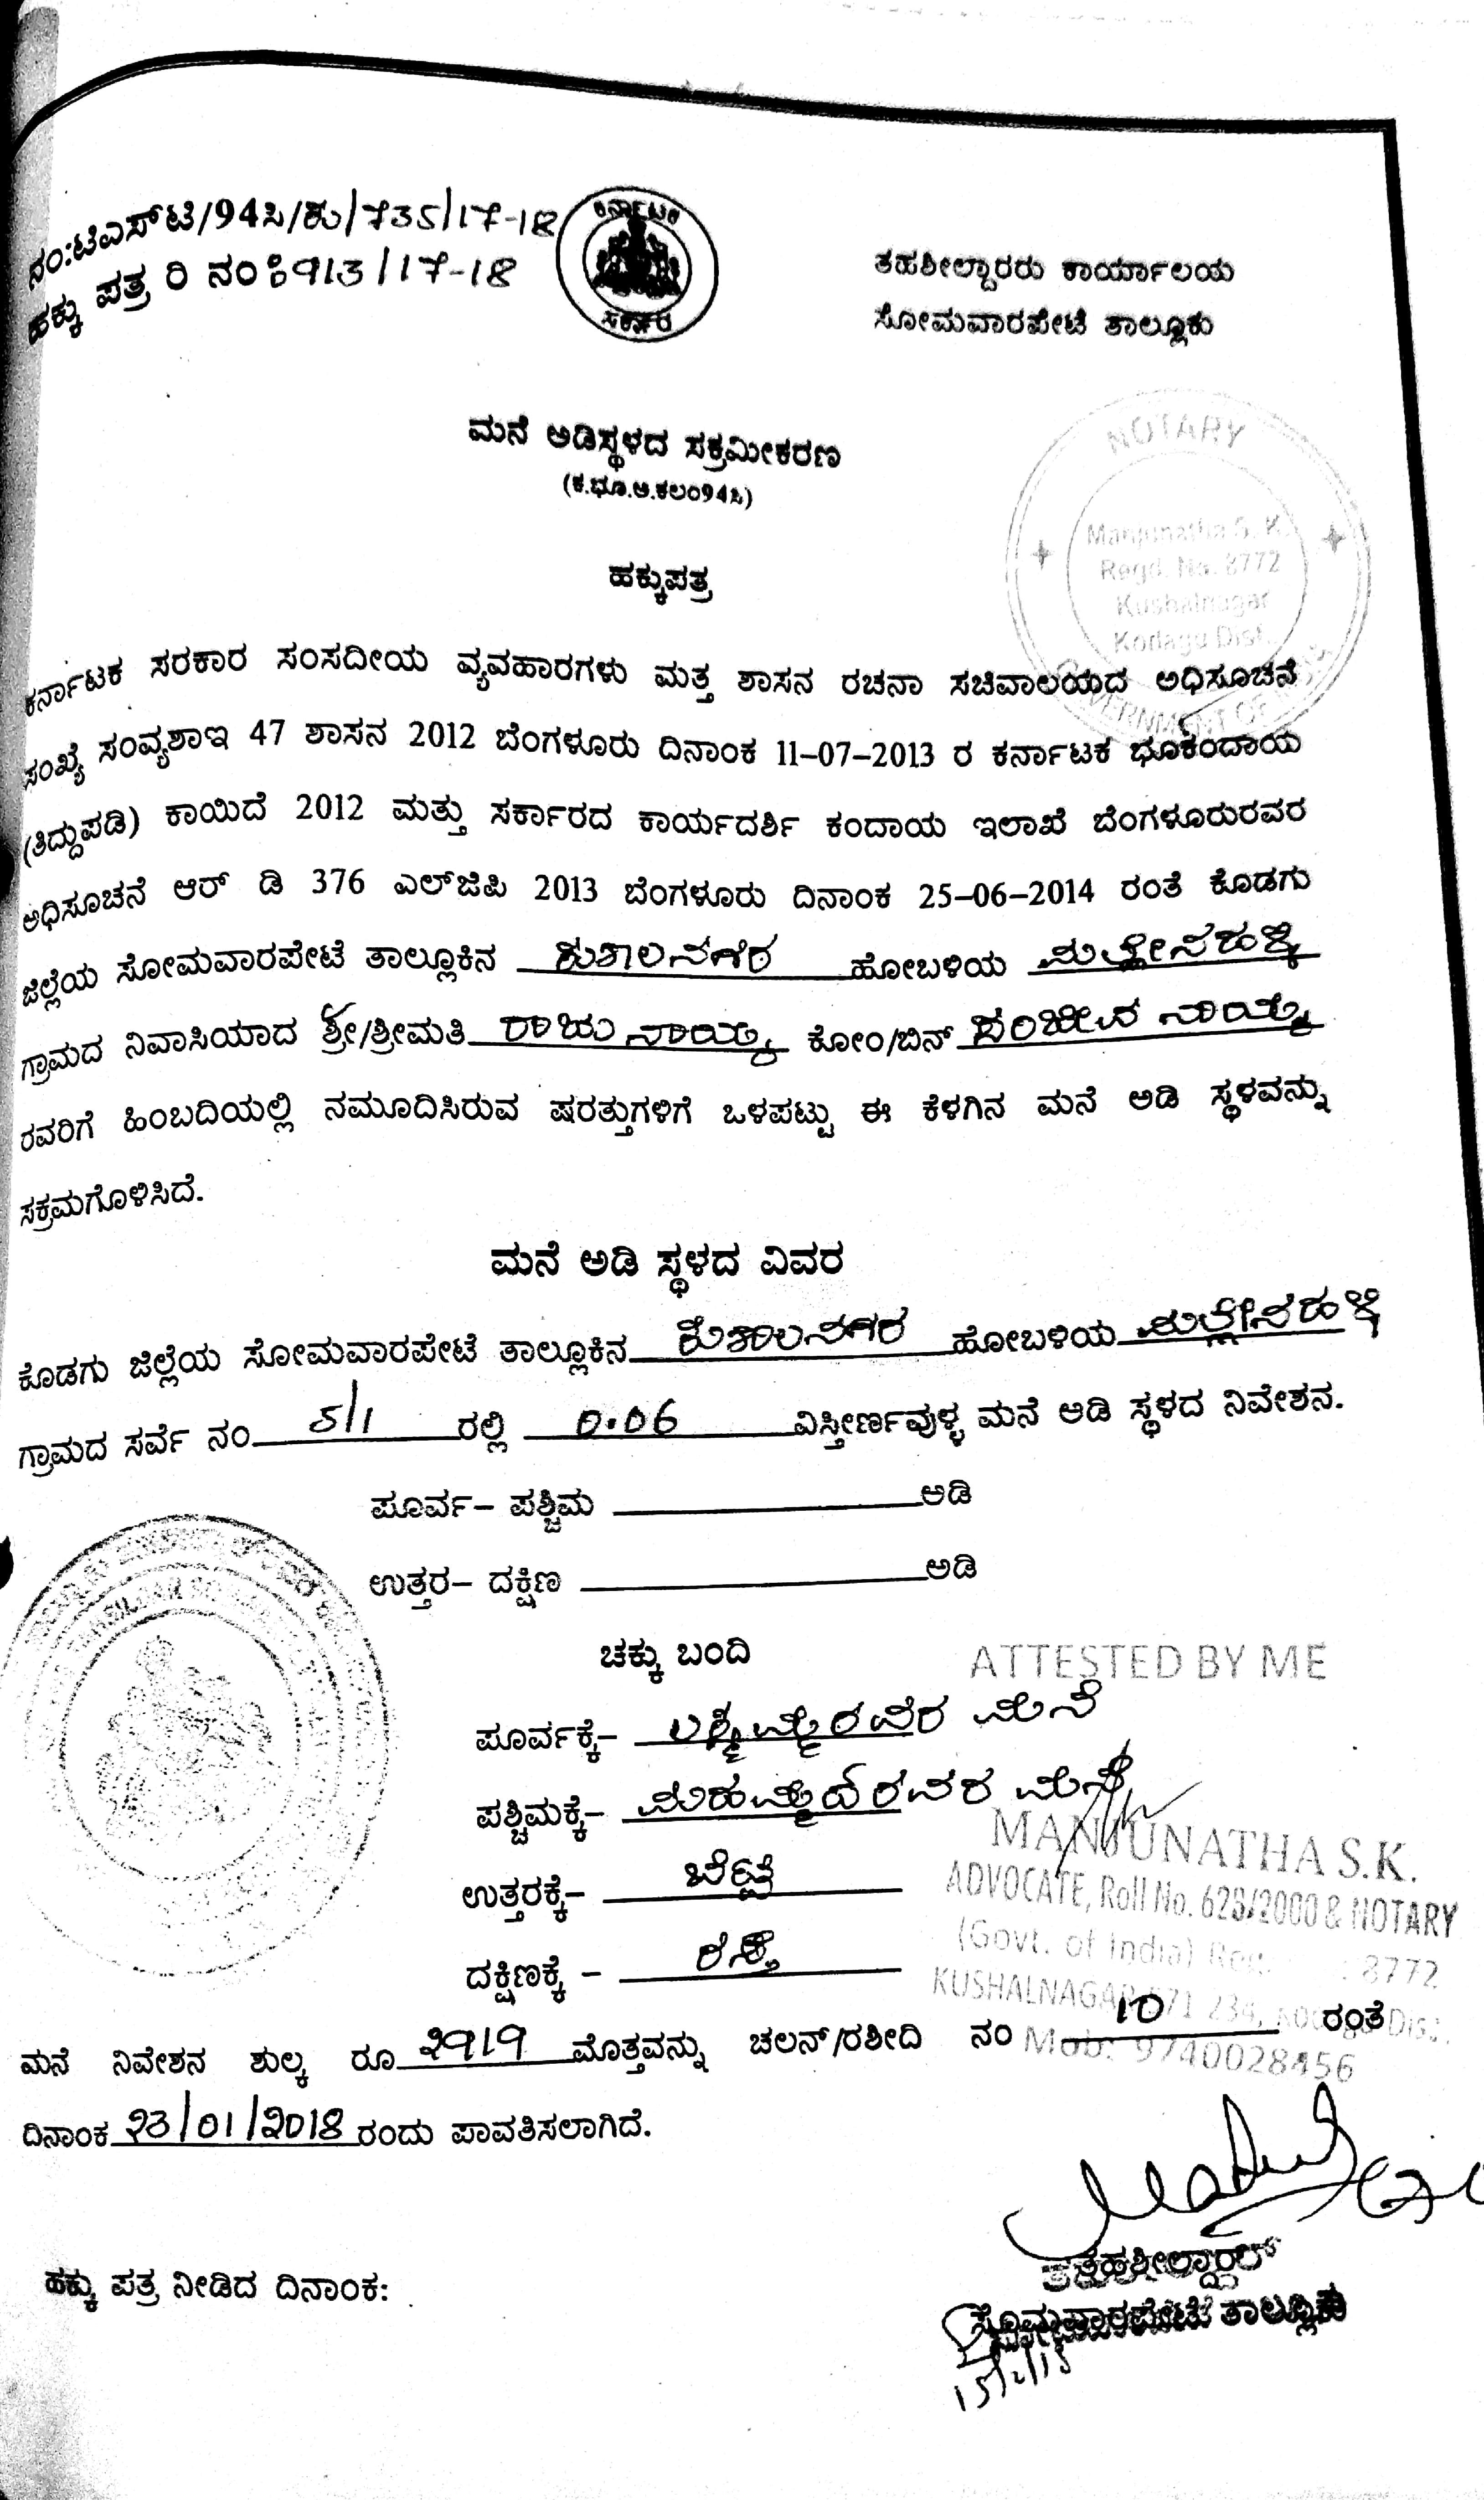 ನಂ:ಟಿಎಸ್‌ಟಿ/94ಸಿ/ಕು/735/17-18
ಹಕ್ಕು ಪತ್ರ ರಿ ನಂ:913/17-18
ಕರ್ನಾಟಕ
ಸರ್ಕಾರ
ತಹಶೀಲ್ದಾರರು ಕಾರ್ಯಾಲಯ
ಸೋಮವಾರಪೇಟೆ ತಾಲ್ಲೂಕು
ಮನೆ ಅಡಿಸ್ಥಳದ ಸಕ್ರಮೀಕರಣ
(ಕ.ಭೂ.ಆ.ಕಲಂ94ಸಿ)
NOTARY
Manjunatha S. K.
Regd. No. 8772
Kushalnagar
Kodagu Dist.
GOVERNMENT OF
ಹಕ್ಕುಪತ್ರ
ಕರ್ನಾಟಕ ಸರಕಾರ ಸಂಸದೀಯ ವ್ಯವಹಾರಗಳು ಮತ್ತ ಶಾಸನ ರಚನಾ ಸಚಿವಾಲಯದ ಅಧಿಸೂಚನೆ
ಸಂಖ್ಯೆ ಸಂವ್ಯಶಾಇ 47 ಶಾಸನ 2012 ಬೆಂಗಳೂರು ದಿನಾಂಕ 11-07-2013 ರ ಕರ್ನಾಟಕ ಭೂಕಂದಾಯ
(ತಿದ್ದುಪಡಿ) ಕಾಯಿದೆ 2012 ಮತ್ತು ಸರ್ಕಾರದ ಕಾರ್ಯದರ್ಶಿ ಕಂದಾಯ ಇಲಾಖೆ ಬೆಂಗಳೂರುರವರ
ಅಧಿಸೂಚನೆ ಆರ್ ಡಿ 376 ಎಲ್‌ಜಿಪಿ 2013 ಬೆಂಗಳೂರು ದಿನಾಂಕ 25-06-2014 ರಂತೆ ಕೊಡಗು
ಜಿಲ್ಲೆಯ ಸೋಮವಾರಪೇಟೆ ತಾಲ್ಲೂಕಿನ ಕುಶಾಲನಗರ ಹೋಬಳಿಯ ಮುಳ್ಳುಸೋಗೆ
ಗ್ರಾಮದ ನಿವಾಸಿಯಾದ ಶ್ರೀ/ಶ್ರೀಮತಿ ರಾಜು ನಾಯ್ಕ ಕೋಂ/ಬಿನ್ ಸಂಜೀವ ನಾಯ್ಕ
ರವರಿಗೆ ಹಿಂಬದಿಯಲ್ಲಿ ನಮೂದಿಸಿರುವ ಷರತ್ತುಗಳಿಗೆ ಒಳಪಟ್ಟು ಈ ಕೆಳಗಿನ ಮನೆ ಅಡಿ ಸ್ಥಳವನ್ನು
ಸಕ್ರಮಗೊಳಿಸಿದೆ.
ಮನೆ ಅಡಿ ಸ್ಥಳದ ವಿವರ
ಕೊಡಗು ಜಿಲ್ಲೆಯ ಸೋಮವಾರಪೇಟೆ ತಾಲ್ಲೂಕಿನ ಕುಶಾಲನಗರ ಹೋಬಳಿಯ
ಗ್ರಾಮದ ಸರ್ವೆ ನಂ 5/1 ರಲ್ಲಿ 0.06 ವಿಸ್ತೀರ್ಣವುಳ್ಳ ಮನೆ ಅಡಿ ಸ್ಥಳದ ನಿವೇಶನ.
ಪೂರ್ವ- ಪಶ್ಚಿಮ ಅಡಿ
ಉತ್ತರ- ದಕ್ಷಿಣ ಅಡಿ
ಚಕ್ಕು ಬಂದಿ
ATTESTED BY ME
ಪೂರ್ವಕ್ಕೆ- ಲಕ್ಷ್ಮಮ್ಮರವರ ಮನೆ
ಪಶ್ಚಿಮಕ್ಕೆ- ಮಹಮ್ಮದ್‌ರವರ ಮನೆ
MANJUNATHA S.K.
ಉತ್ತರಕ್ಕೆ- ಬೆಟ್ಟ
ADVOCATE, Roll No. 628/2000 & NOTARY
(Govt. of India) Reg. 8772
ದಕ್ಷಿಣಕ್ಕೆ - ರಸ್ತೆ
KUSHALNAGAR 571 234, Kodagu Dist.
Mob: 9740028456
ಮನೆ ನಿವೇಶನ ಶುಲ್ಕ ರೂ 2919 ಮೊತ್ತವನ್ನು ಚಲನ್/ರಶೀದಿ ನಂ 10 ರಂತೆ
ದಿನಾಂಕ 23/01/2018 ರಂದು ಪಾವತಿಸಲಾಗಿದೆ.
ಹಕ್ಕು ಪತ್ರ ನೀಡಿದ ದಿನಾಂಕ:
ತಹಶೀಲ್ದಾರ್
ಸೋಮವಾರಪೇಟೆ ತಾಲ್ಲೂಕು